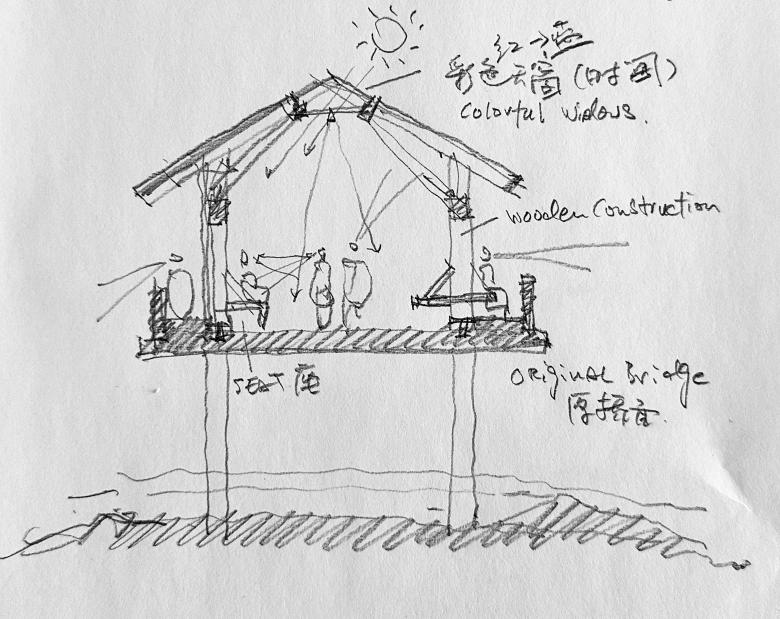 红→蓝
彩色天窗(时间)
Colorful Widows.
Wooden Construction
SEAT 座
ORIGINAL Bridge
原桥面